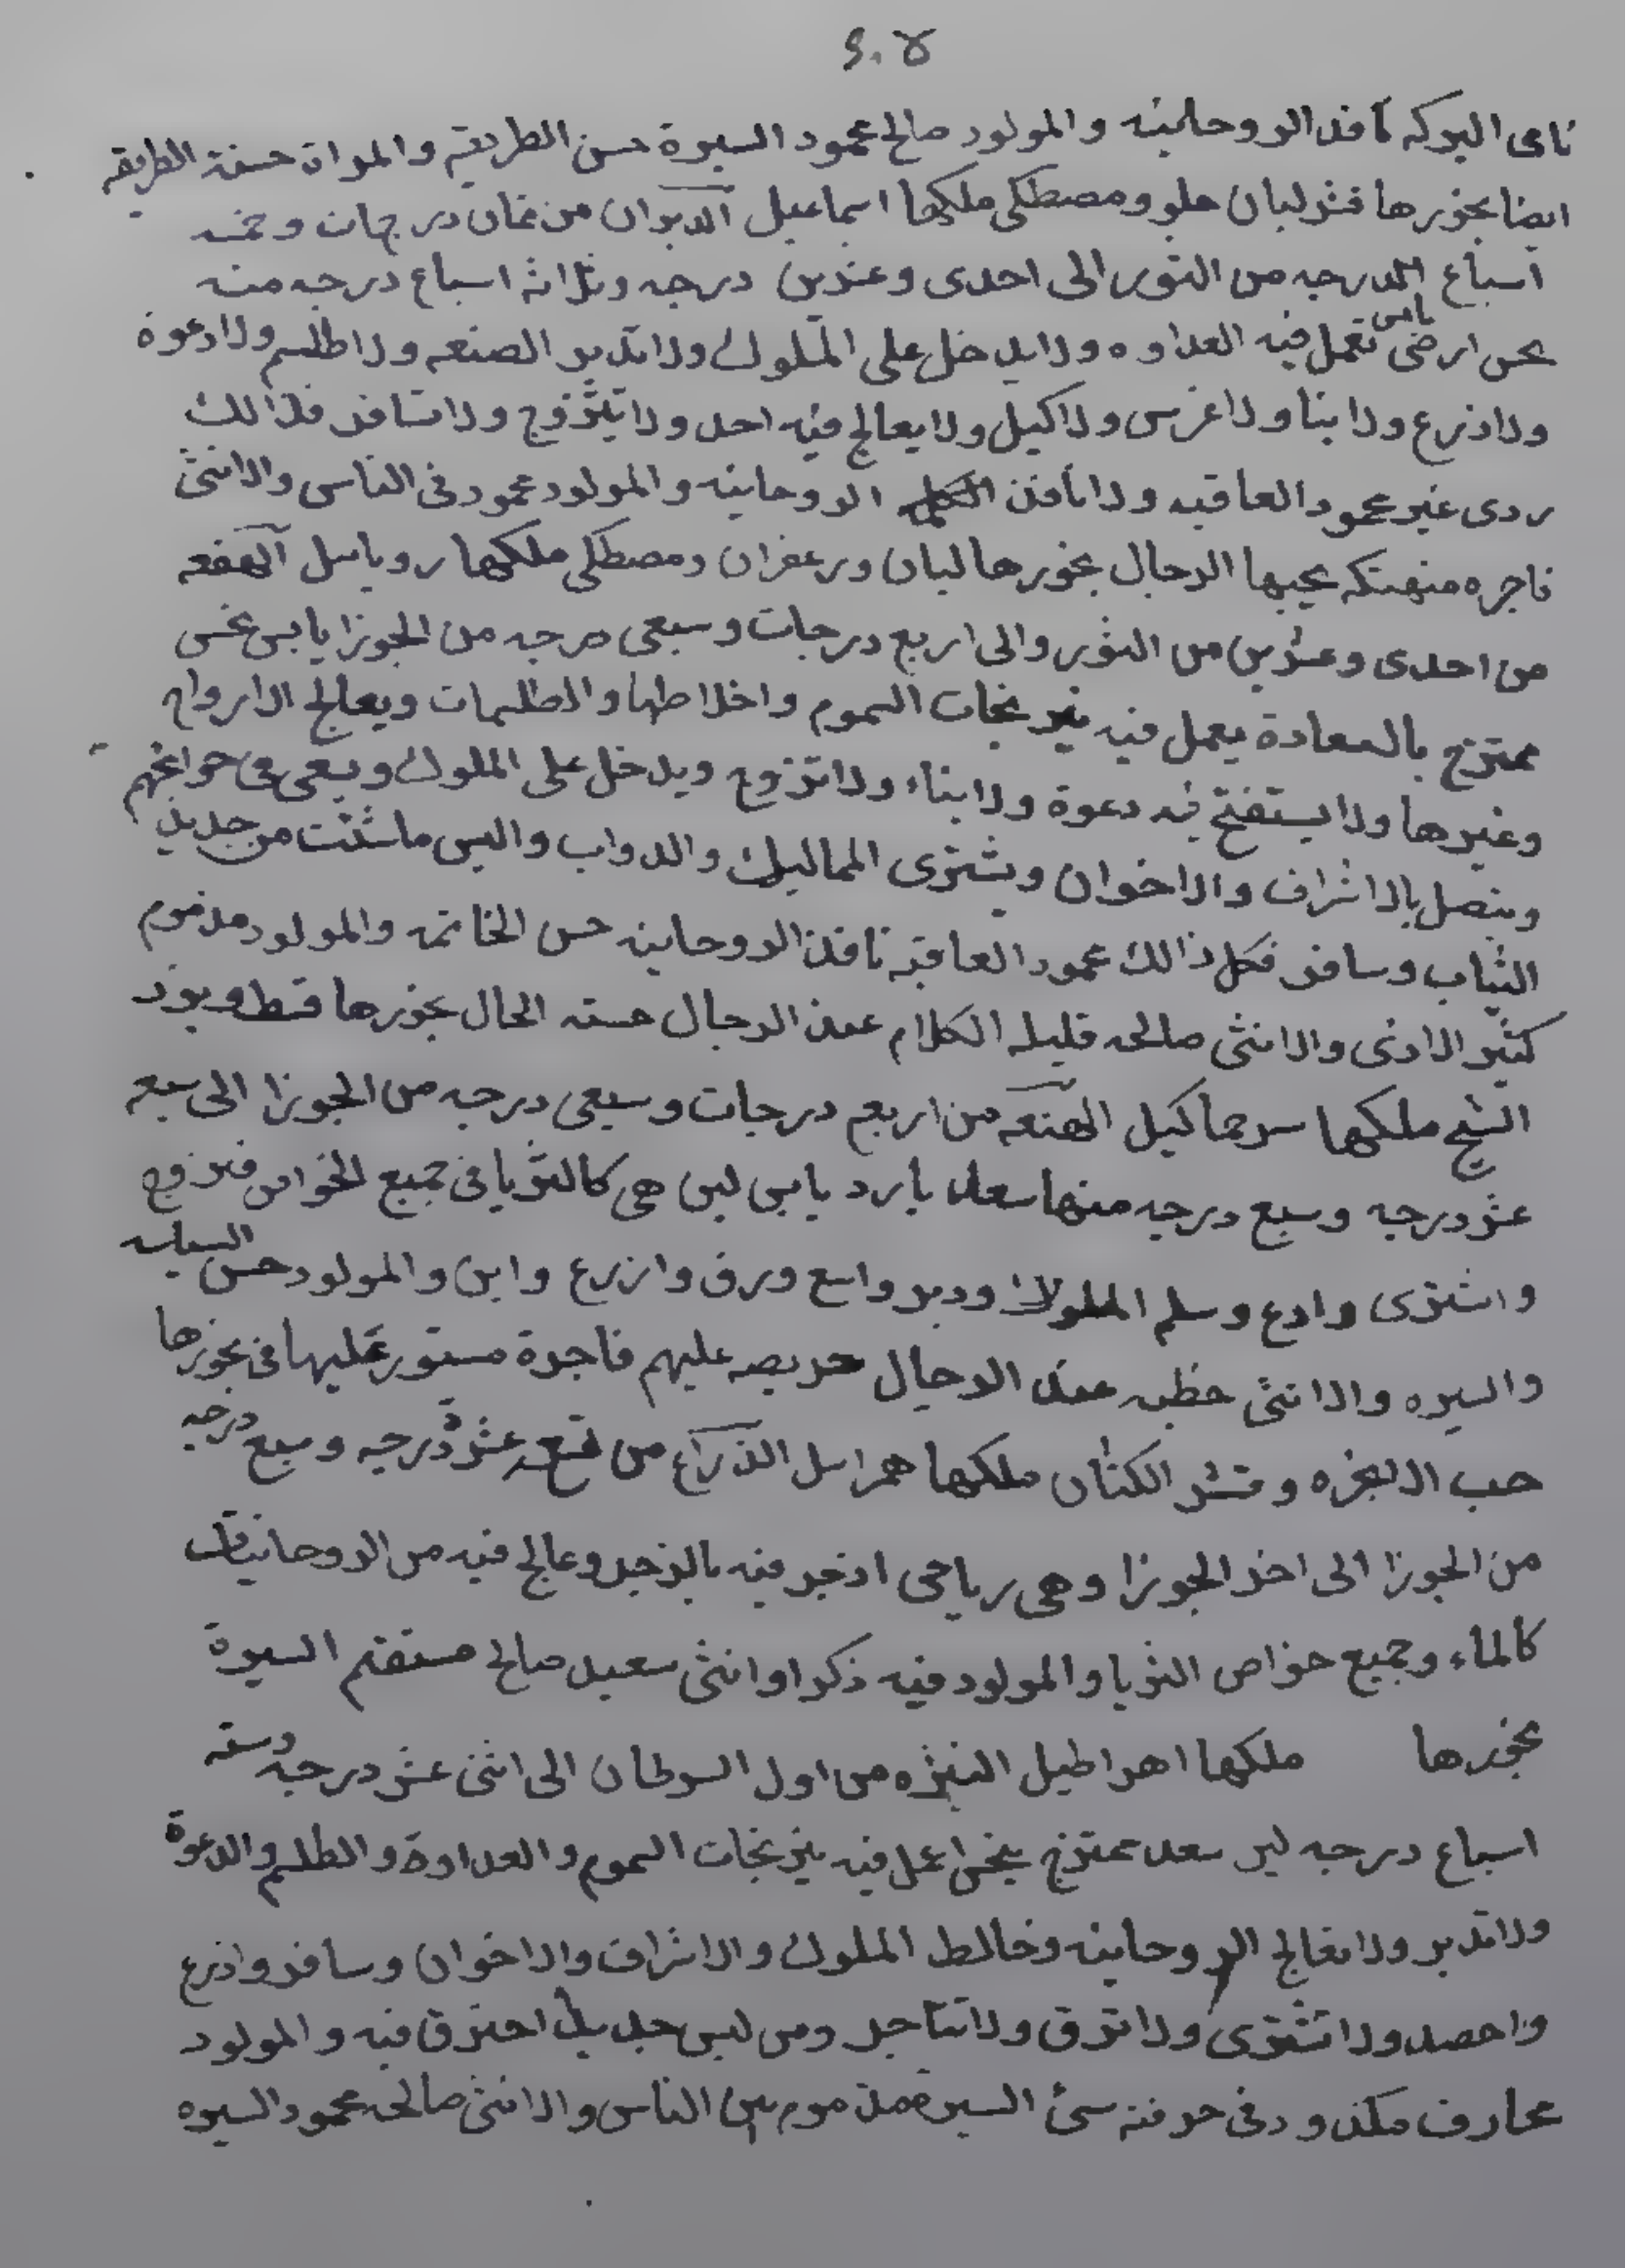 ٢٠٥
نامى البركه نافذ الروحانيه والمولود صالح محمود السيرة حسن الطريقه والمراة حسنة الطريقه
ايضا بخورها قشر لبان حلو ومصطكى ملكها اسماعيل الدبران من ثمان درجات وخمسه
اسباع الدرجه من الثور الى احدى وعشرين درجه وثلاثه اسباع درجه منه
نحس ارضى يابس تعمل فيه العداوه ولا يدخل على الملوك ولا تدبير الصنعه ولا طلسم ولا دعوة
ولا زرع ولا بنا ولا غرس ولا كيل ولا يعالج فيه احد ولا يتزوج ولا تسافر فذالك
ردى غير محمود العاقبه ولا نافذ الروحانيه والمولود محمود فى الناس والانثى
فاجره منهتكه يحبها الرجال بخورها لبان وزعفران ومصطكى ملكها روياىيل الهقعه
من احدى وعشرين من الثور والى اربع درجات وسبعى درجه من الجوزا يابس نحس
ممتزج بالسعادة يعمل فيه نيرنجات السموم واخلاطها والطلسمات ويعالج الارواح
وغيرها ولا يستفتح فيه دعوة ولا بناء ولا تزوج ويدخل على الملوك ويسعى فى حوائجهم
ويتصل بالاشراف والاخوان ويشترى المماليك والدواب والبس ماشئت من جديد
الثياب وسافر فكل ذالك محمود العاقبه نافذ الروحانيه حسن الخاتمه والمولود مذموم
كثير الاذى والانثى صالحه قليله الكلام عند الرجال حسنه الحال بخورها قسط وبزر
الشيح ملكها سرحماكيل الهنعه من اربع درجات وسبعى درجه من الجوزا الى سبعه
عشر درجه وسبع درجه منها سعد بارد يابس لين هى كالثريا فى جميع الخواص فتزوج
واشترى وادع وسلم الملوك ودبر واسع ورق وازرع وابن والمولود حسن السياسه
والسيره والانثى حظيه عند الرجال حريصه عليهم فاجرة مستور عليها فى بخورها
حب الانجره وقشر الكتان ملكها همراىيل الذراع من سبعة عشرة درجه وسبع درجه
من الجوزا الى اخر الجوزا وهى رياحى ادخر فيه بالزجر وعالج فيه من الروحانيات
كالماء وجميع خواص الثريا والمولود فيه ذكرا وانثى سعيد صالح مستقيم السيرة
بخورها ملكها اهراطيل النثره من اول السرطان الى اثنى عشر درجه وسته
اسباع درجه لين سعد ممتزج بنحس اعمل فيه نيرنجات السموم والعداوة والطلسم والدعوة
ولا تدبر ولا تعالج الروحانيه وخالط الملوك والاشراف والاخوان وسافر وازرع
واحصد ولا تشترى ولا ترق ولا تتاجر ومن لبس جديدا احترق فيه والمولود
محارف مكدود فى حرفته سئ السيرة مذموم بين الناس والانثى صالحه محمود السيره